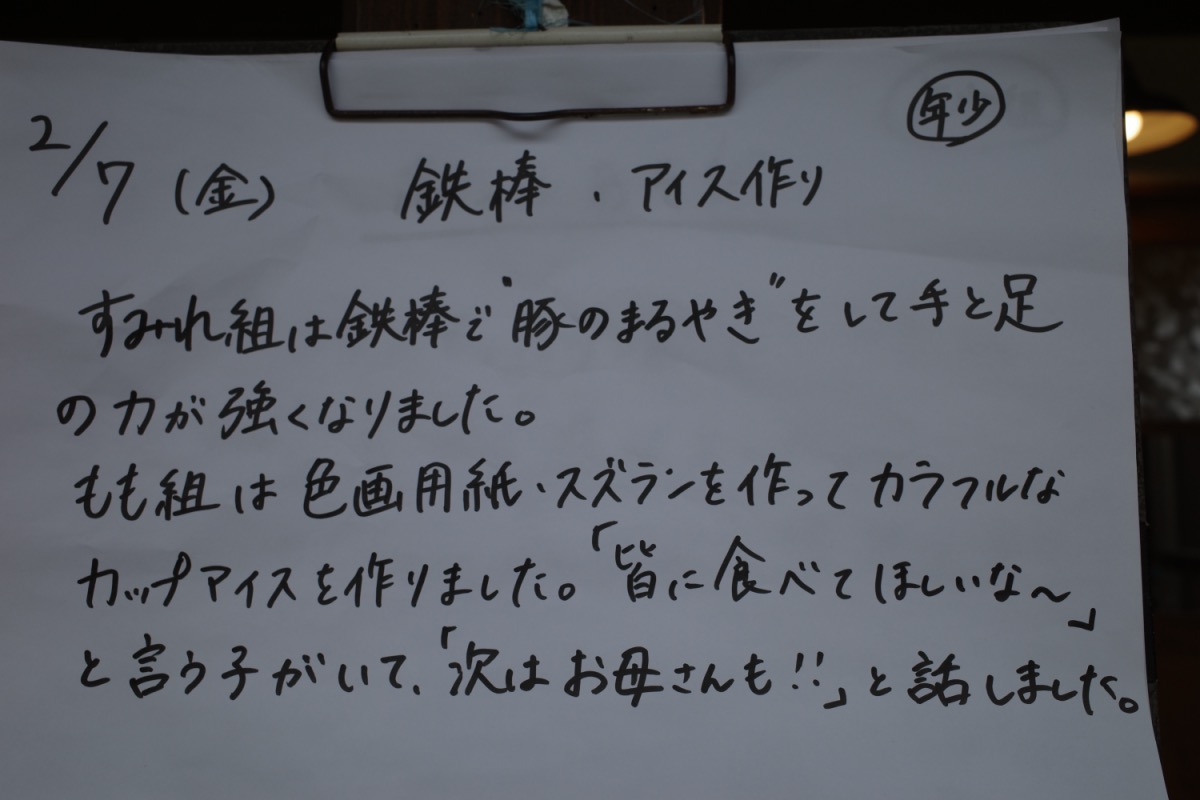 年少
2/7(金) 鉄棒、アイス作り
すみれ組は鉄棒で"豚のまるやき"をして手と足
の力が強くなりました。
もも組は色画用紙・スズランを作ってカラフルな
カップアイスを作りました。「皆に食べてほしいな〜」
と言う子がいて、「次はお母さんも!!」と話しました。